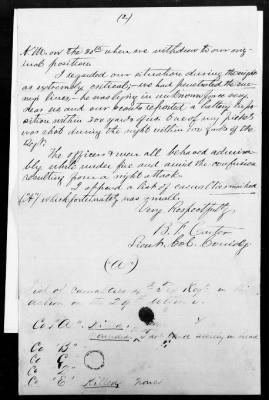 (2)
A.M. on the 30th when we withdrew to our orig-
inal position.
I regarded our situation during the night
as extremely critical; we had penetrated the ene-
my's lines — he was lying in unknown force very
near us and our scouts reported a battery in po-
sition within 300 yards of us. One of my pickets
was shot during the night within 100 yards of the
Regt.
The officers & men all behaved admira-
bly while under fire and amid the confusion
resulting from a night attack.
I append a list of casualties marked
("A") which fortunately was small.
Very Respectfully
B. F. Carter
Lieut. Col. Comdg
("A")
List of Casualties 4th Tex Regt in the
action on the 29th
Co "A" Killed
Wounded
Co "B"
Co "C"
Co
Co "E" Killed None